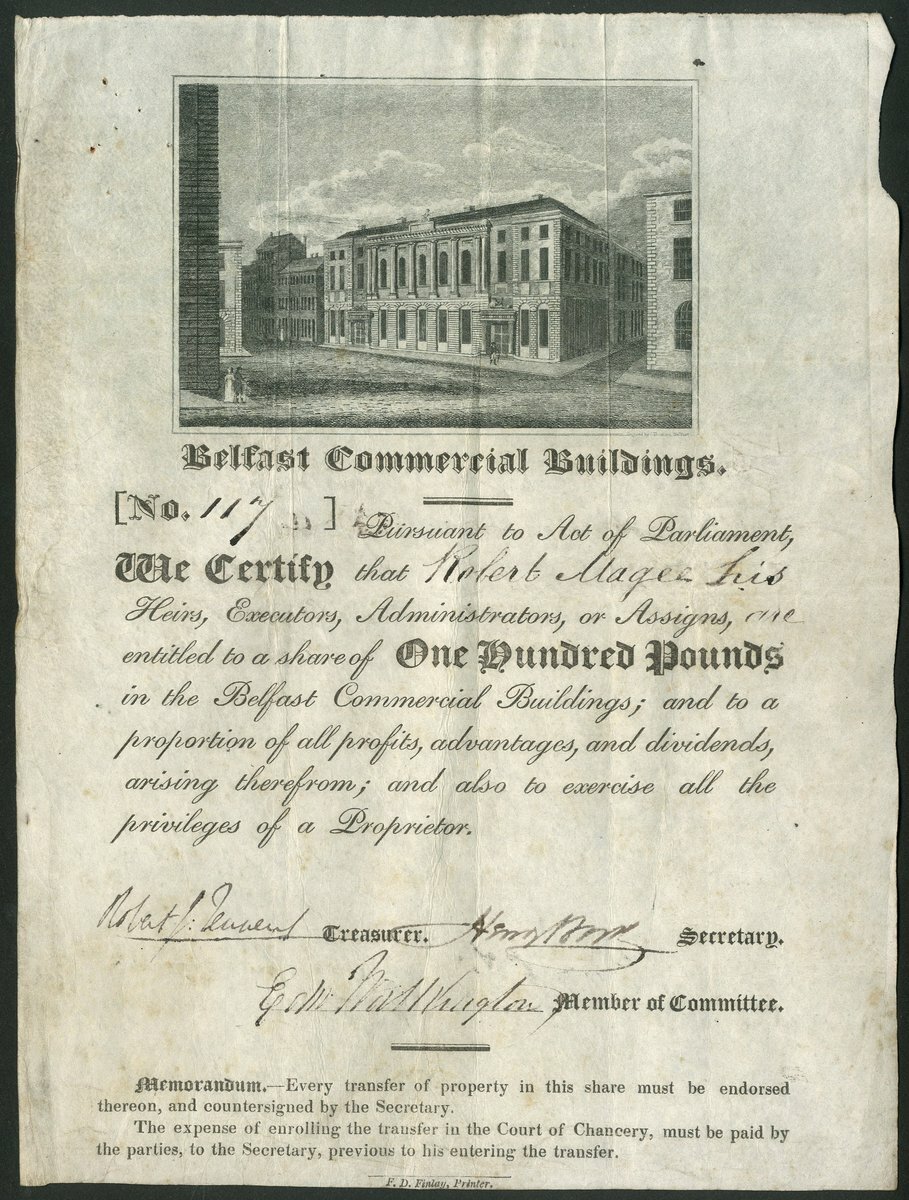 Belfast Commercial Buildings.
[No. 117 ]
Pursuant to Act of Parliament,
We Certify that Robert Magee his
Heirs, Executors, Administrators, or Assigns, are
entitled to a share of One Hundred Pounds
in the Belfast Commercial Buildings; and to a
proportion of all profits, advantages, and dividends,
arising therefrom; and also to exercise all the
privileges of a Proprietor.
Robert J: Tennent Treasurer. Henry Secretary.
Member of Committee.
Memorandum.—Every transfer of property in this share must be endorsed
thereon, and countersigned by the Secretary.
The expense of enrolling the transfer in the Court of Chancery, must be paid by
the parties, to the Secretary, previous to his entering the transfer.
F. D. Finlay, Printer.